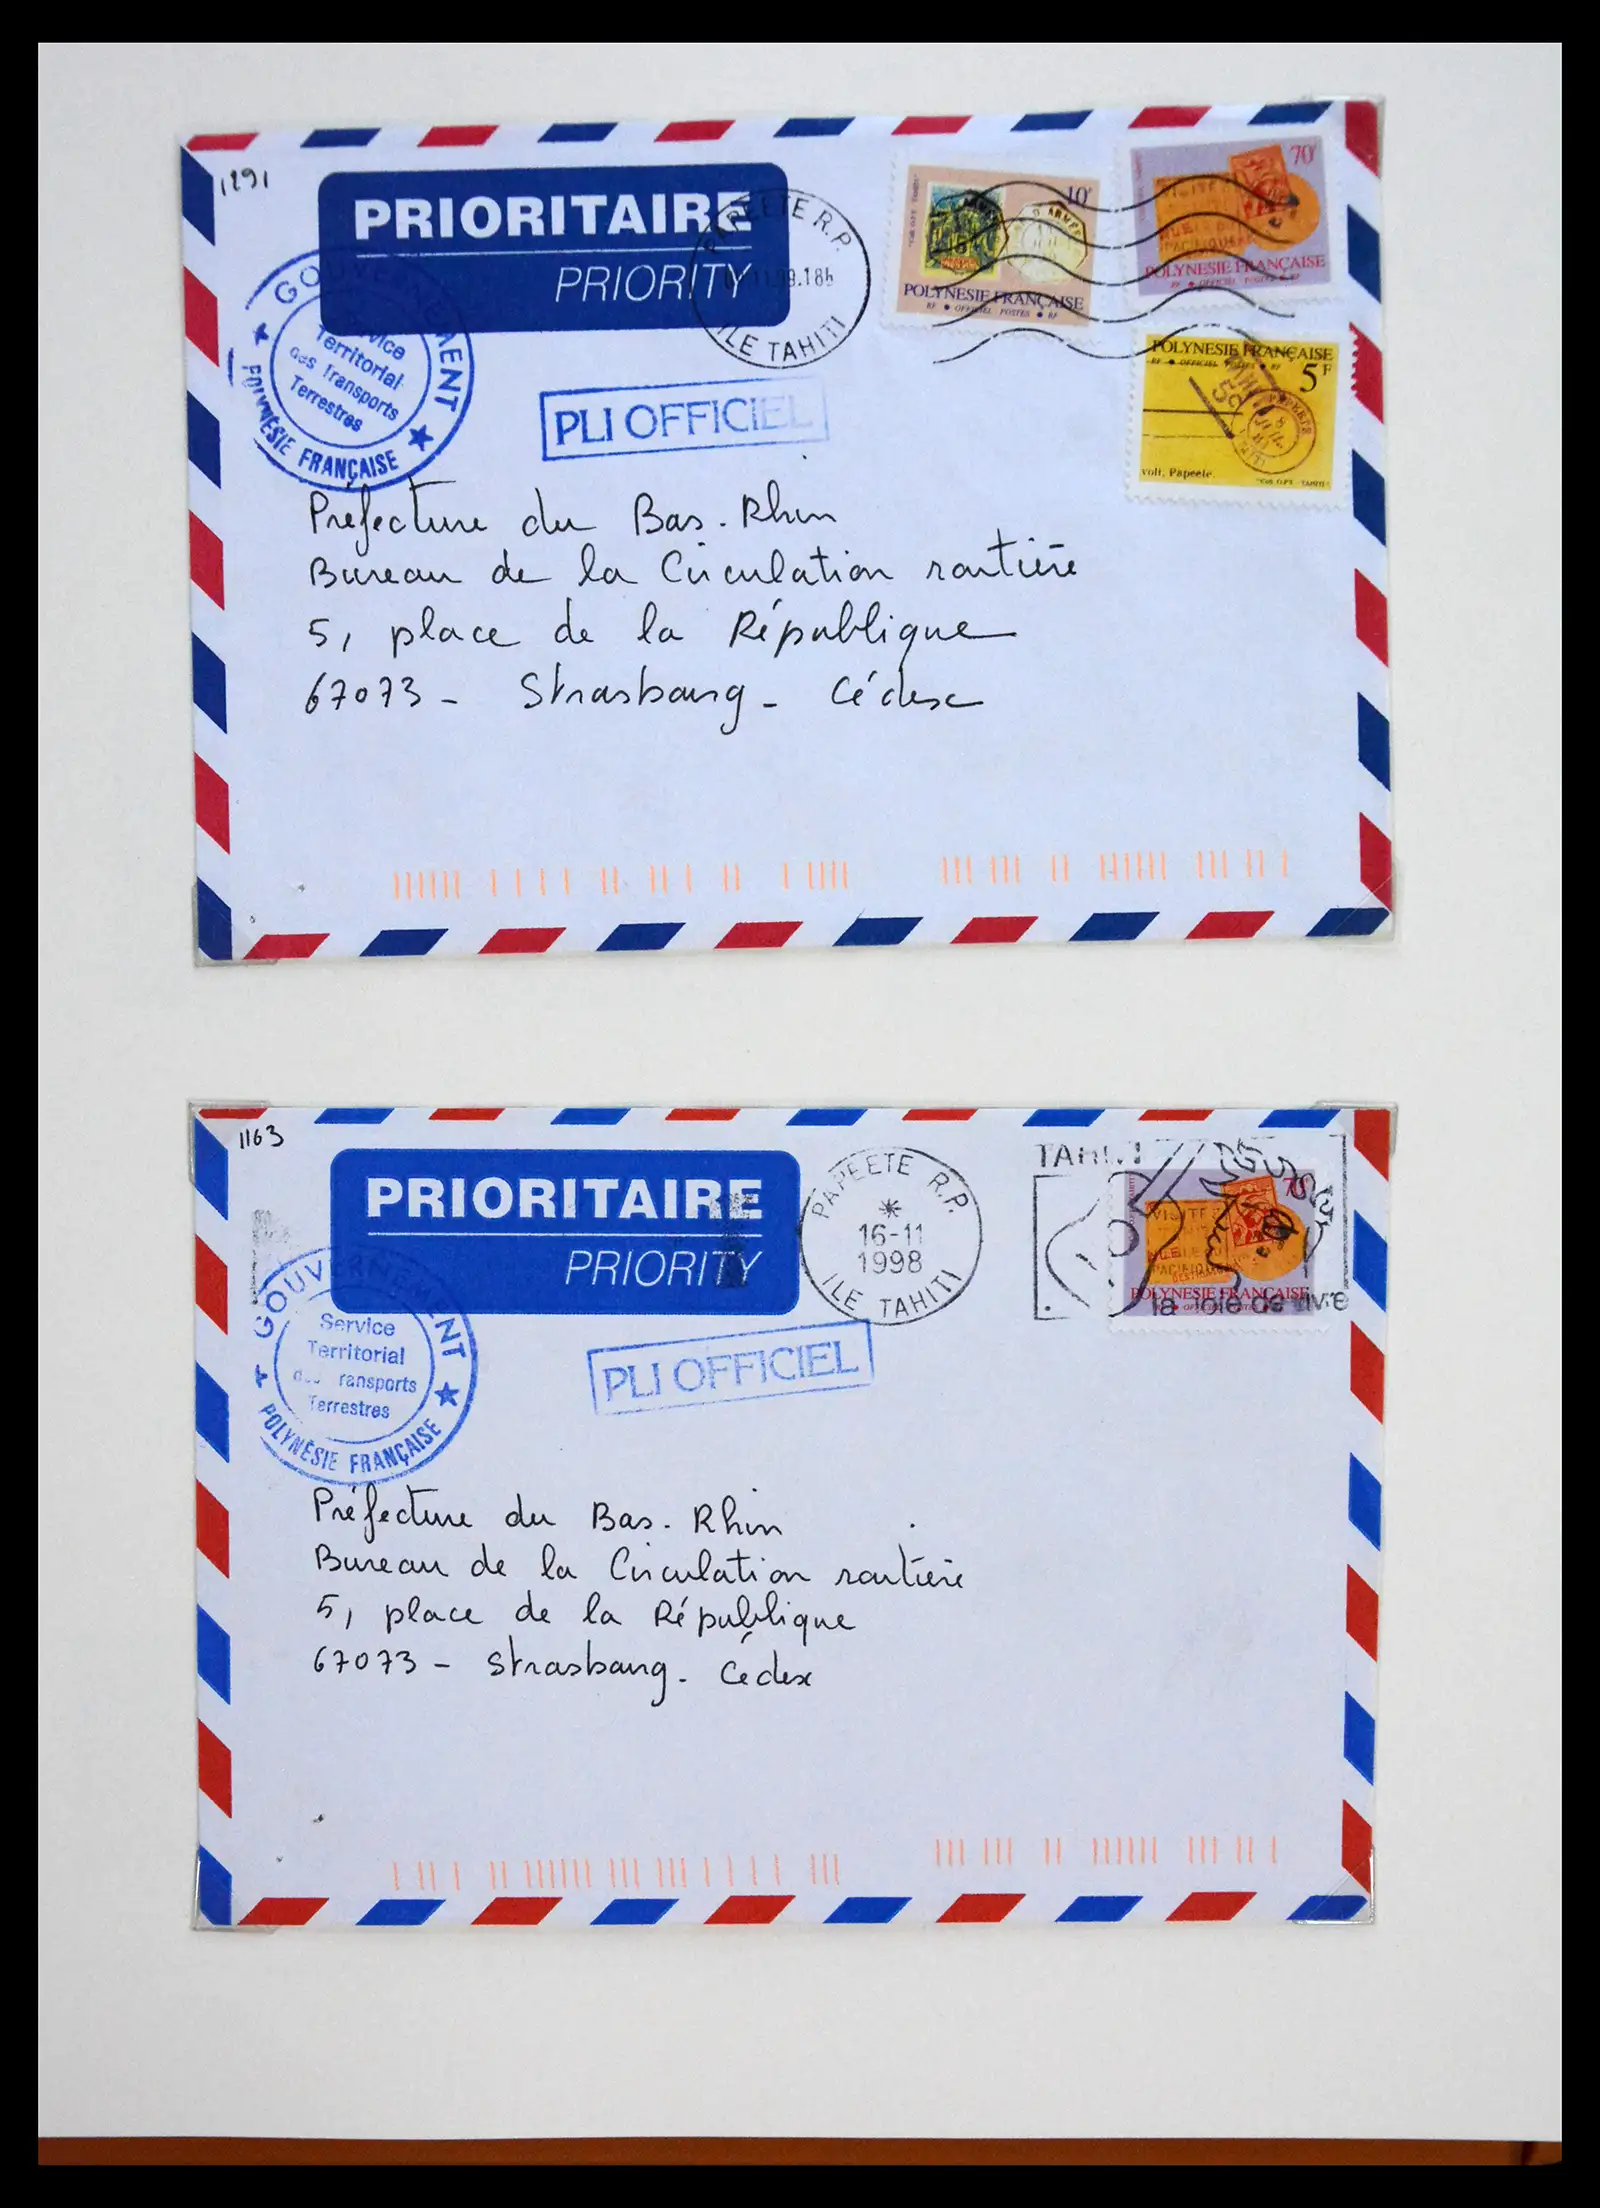 1291
PRIORITAIRE
PRIORITY
PAPEETE R.P.
ILE TAHITI
GOUVERNEMENT
Service
Territorial
des Transports
Terrestres
POLYNÉSIE FRANÇAISE
PLI OFFICIEL
10F
POLYNESIE FRANÇAISE
RF ● OFFICIEL POSTES ● RF
70F
VISITE
PACIFIQUE
POLYNESIE FRANÇAISE
RF ● OFFICIEL POSTES ● RF
POLYNESIE FRANÇAISE
RF ● OFFICIEL POSTES ● RF
5F
PAPEETE
volt, Papeete.
Préfecture du Bas-Rhin
Bureau de la Circulation routière
5, place de la République
67073 - Strasbourg - Cédex
1163
PRIORITAIRE
PRIORITY
PAPEETE R.P.
16-11
1998
ILE TAHITI
TAHITI
la joie de vivre
VISITE
PACIFIQUE
POLYNESIE FRANÇAISE
GOUVERNEMENT
Service
Territorial
des Transports
Terrestres
POLYNÉSIE FRANÇAISE
PLI OFFICIEL
Préfecture du Bas-Rhin
Bureau de la Circulation routière
5, place de la République
67073 - Strasbourg - Cédex